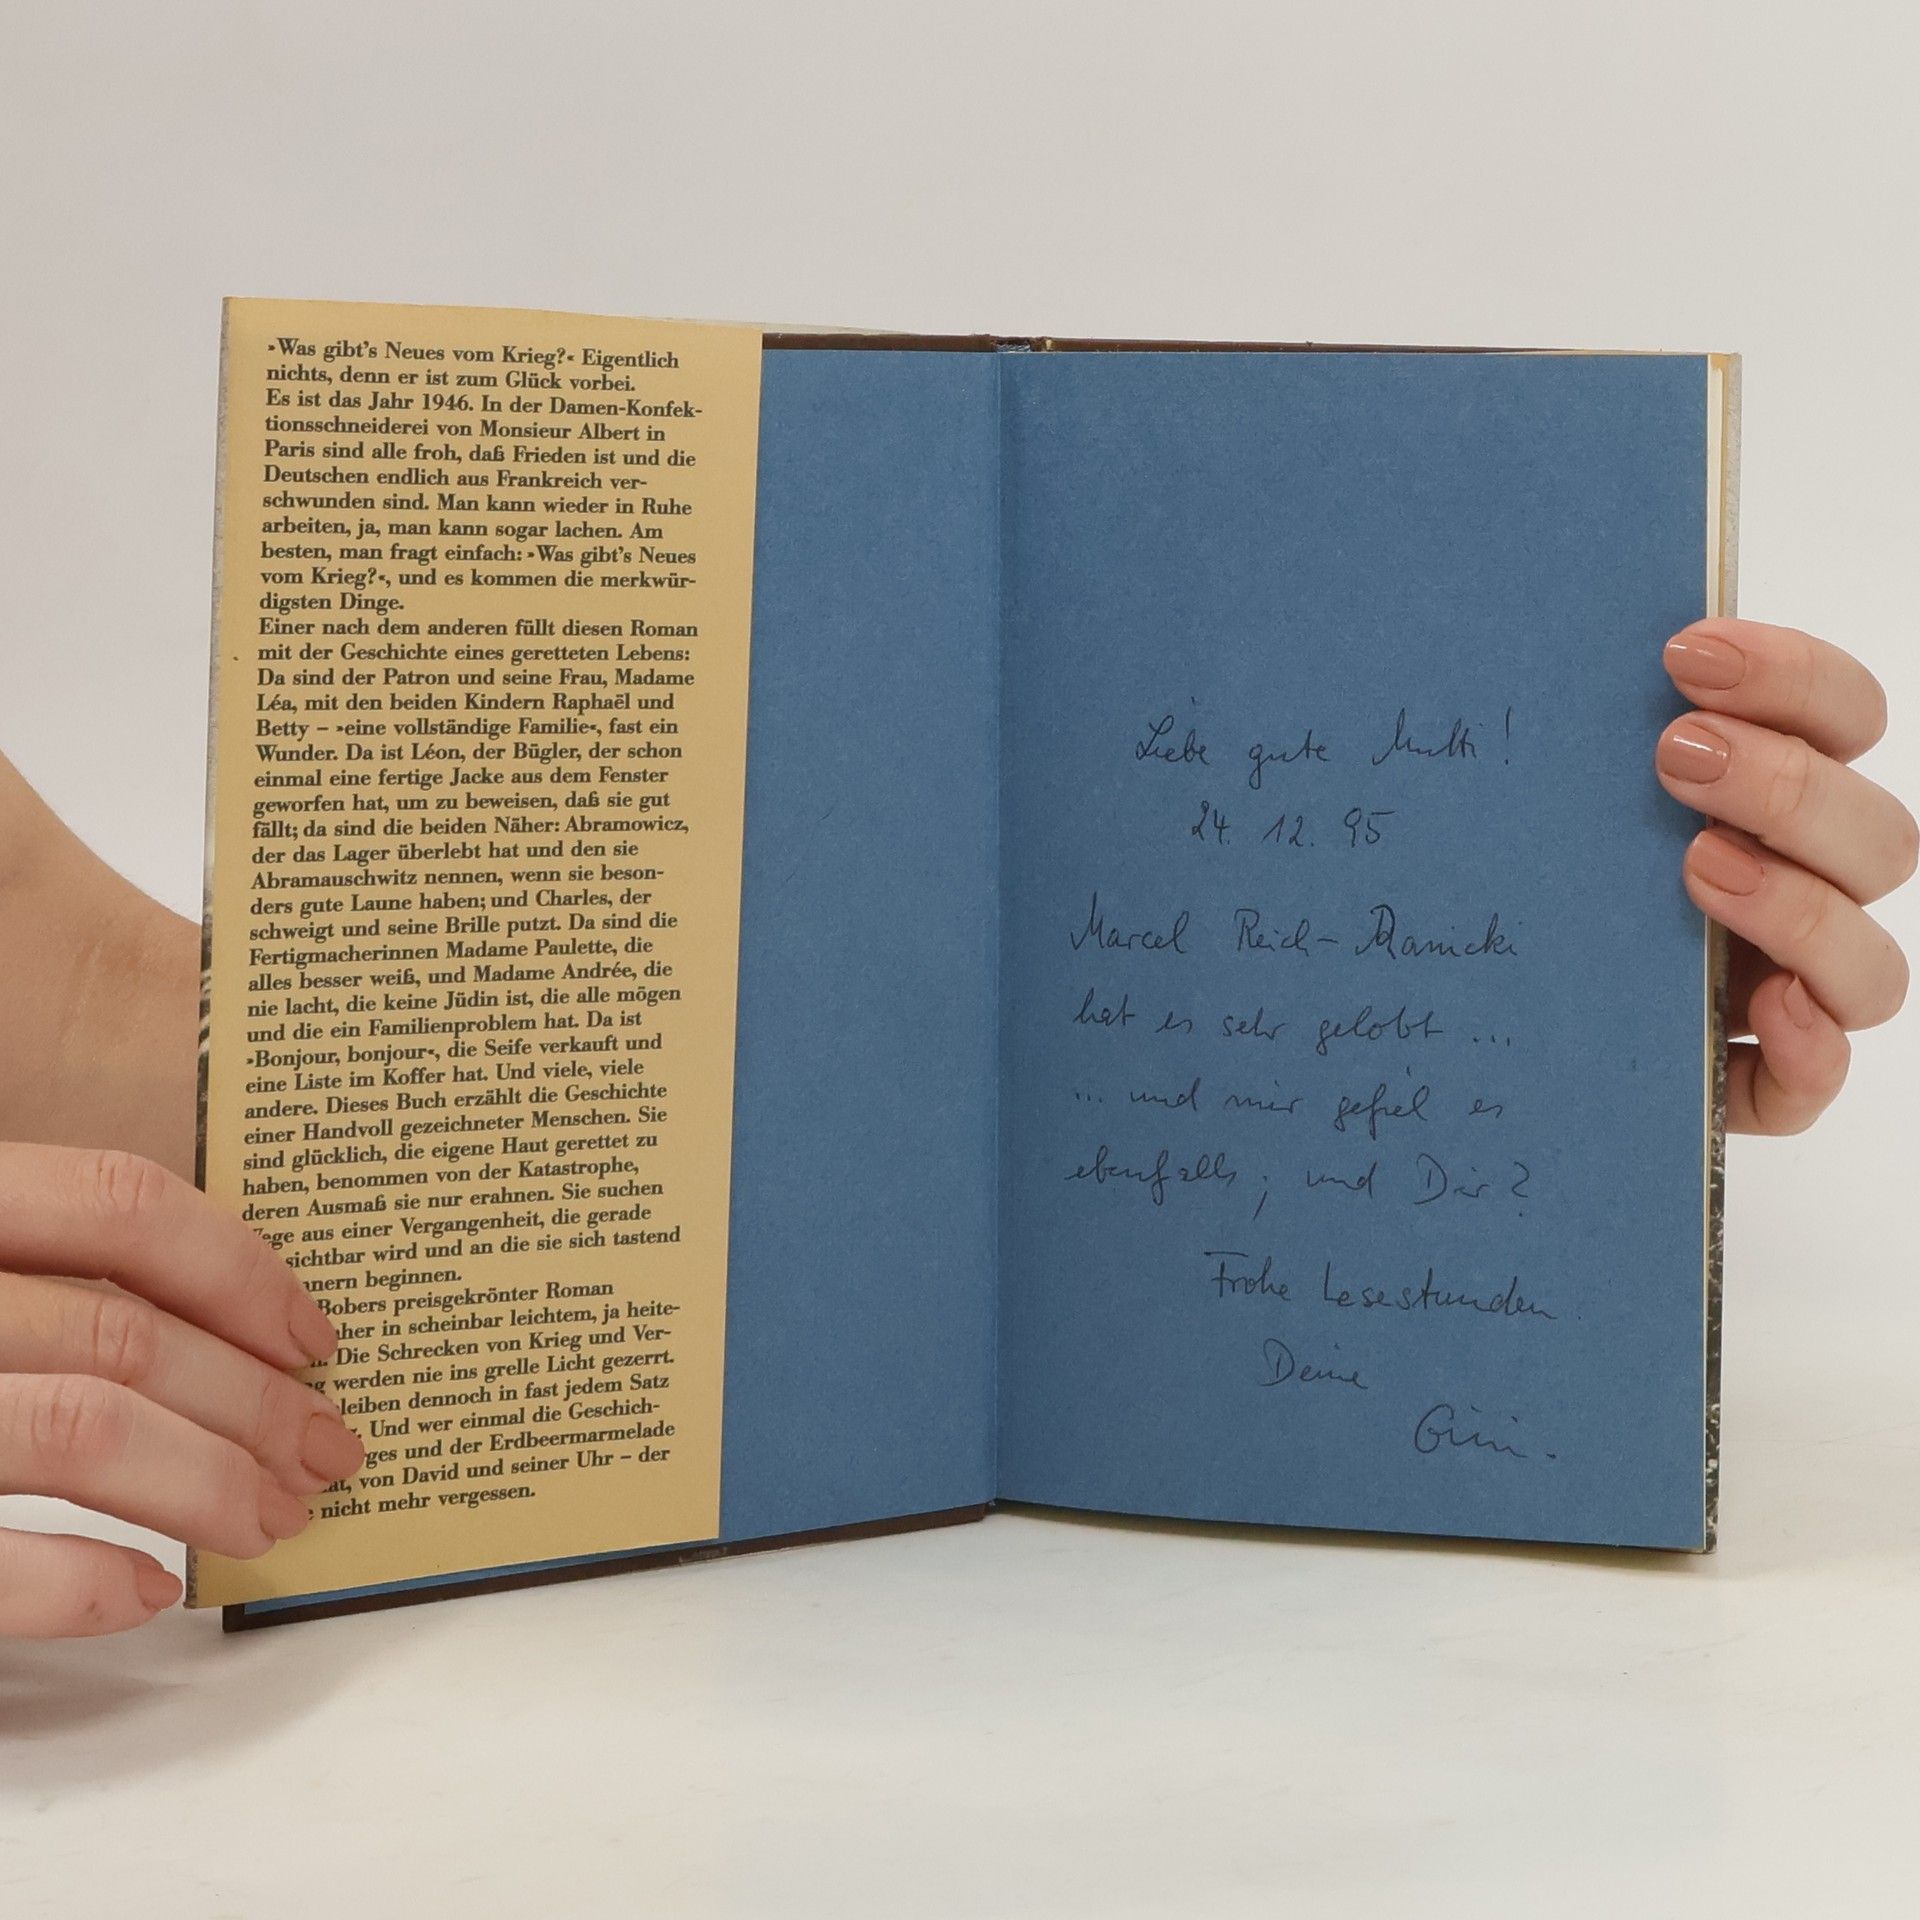 »Was gibt's Neues vom Krieg?« Eigentlich
nichts, denn er ist zum Glück vorbei.
Es ist das Jahr 1946. In der Damen-Konfek-
tionsschneiderei von Monsieur Albert in
Paris sind alle froh, daß Frieden ist und die
Deutschen endlich aus Frankreich ver-
schwunden sind. Man kann wieder in Ruhe
arbeiten, ja, man kann sogar lachen. Am
besten, man fragt einfach: »Was gibt's Neues
vom Krieg?«, und es kommen die merkwür-
digsten Dinge.
Einer nach dem anderen füllt diesen Roman
mit der Geschichte eines geretteten Lebens:
Da sind der Patron und seine Frau, Madame
Léa, mit den beiden Kindern Raphaël und
Betty – »eine vollständige Familie«, fast ein
Wunder. Da ist Léon, der Bügler, der schon
einmal eine fertige Jacke aus dem Fenster
geworfen hat, um zu beweisen, daß sie gut
fällt; da sind die beiden Näher: Abramowicz,
der das Lager überlebt hat und den sie
Abramauschwitz nennen, wenn sie beson-
ders gute Laune haben; und Charles, der
schweigt und seine Brille putzt. Da sind die
Fertigmacherinnen Madame Paulette, die
alles besser weiß, und Madame Andrée, die
nie lacht, die keine Jüdin ist, die alle mögen
und die ein Familienproblem hat. Da ist
»Bonjour, bonjour«, die Seife verkauft und
eine Liste im Koffer hat. Und viele, viele
andere. Dieses Buch erzählt die Geschichte
einer Handvoll gezeichneter Menschen. Sie
sind glücklich, die eigene Haut gerettet zu
haben, benommen von der Katastrophe,
deren Ausmaß sie nur erahnen. Sie suchen
aus einer Vergangenheit, die gerade
sichtbar wird und an die sie sich tastend
beginnen.
Bobers preisgekrönter Roman
in scheinbar leichtem, ja heite-
Die Schrecken von Krieg und Ver-
werden nie ins grelle Licht gezerrt.
dennoch in fast jedem Satz
Und wer einmal die Geschich-
und der Erdbeermarmelade
von David und seiner Uhr – der
nicht mehr vergessen.
Liebe gute Mutti!
24. 12. 95
Marcel Reich-Ranicki
hat es sehr gelobt ...
... und mir gefiel es
ebenfalls; und Dir?
Frohe Lesestunden.
Deine